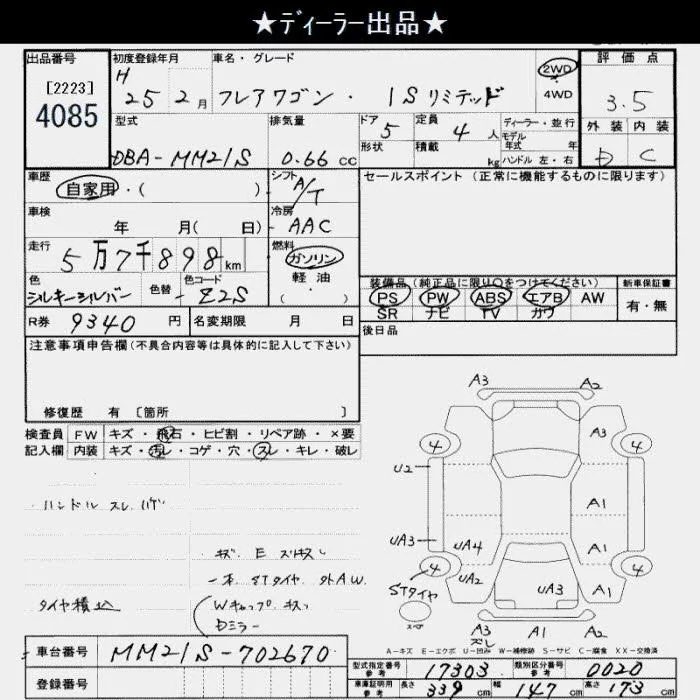 ★ディーラー出品★
出品番号 初度登録年月 車名・グレード 2WD 評価点
[2223] H 25 2月 フレアワゴン・ ISリミテッド 4WD 3.5
4085 型式 排気量 ドア 定員 ディーラー・並行 外装 内装
DBA-MM21S 0.66 cc 5 4人 モデル年式 年 D C
形状 積載 kg ハンドル 左・右
車歴 シフト セールスポイント (正常に機能するものに限ります)
自家用・( ) A/T
車検 冷房
年 月( 日) AAC
走行 燃料
5万7千898km ガソリン
軽油
色 色替 色コード 装備品(純正品に限り○をつけてください) 新車保証書
シルキーシルバー - Z2S ( ) PS PW ABS エアB AW 有・無
SR ナビ TV カワ
R券 9340 円 名変期限 月 日 後日品
注意事項申告欄(不具合内容等は具体的に記入して下さい)
修復歴 有 〔箇所 〕
検査員 FW キズ・飛石・ヒビ割・リペア跡・×要
記入欄 内装 キズ・汚レ・コゲ・穴・スレ・キレ・破レ
ハンドル スレ ハゲ
キズ E
一本 STタイヤ 外AW
タイヤ積込
Wキャップ キズ
Dミラー
A3 A2
4 A3 4
U2
A1
UA3 UA4 A1
4 UA2 UA3 A1 4
STタイヤ
スペア
A3 A1 A2
スレ
A-キズ E-エクボ U-凹み W-補修跡 S-サビ C-腐食 XX-交換済
車台番号 MM21S-702670
登録番号
型式指定番号 参考 17303 類別区分番号 参考 0020
車庫証明用 参考 長さ 339 cm 幅 147 cm 高さ 173 cm